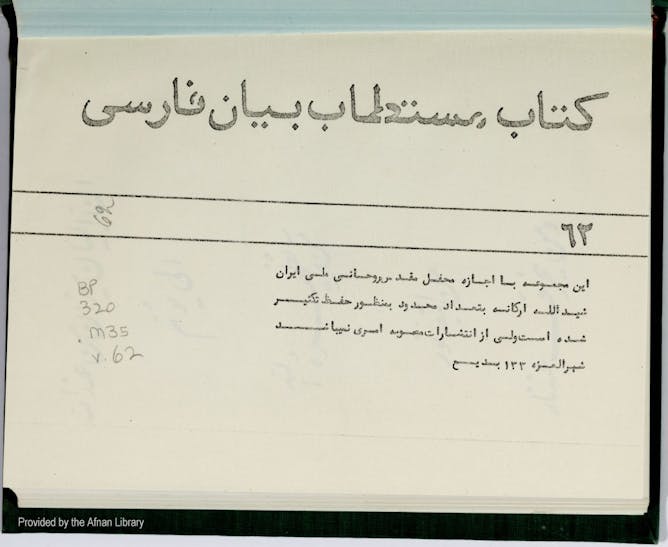 کتاب مستطاب بیان فارسی
۶۲
62
این مجموعه با اجازه محفل مقدس روحانی ملی ایران
شیدالله ارکانه بتعداد محدود بمنظور حفظ تکثیر
شده است ولی از انتشارات مصوبه امری نمیباشد
شهرالعزه ۱۳۳ بدیع
BP
320
.M35
v.62
Provided by the Afnan Library